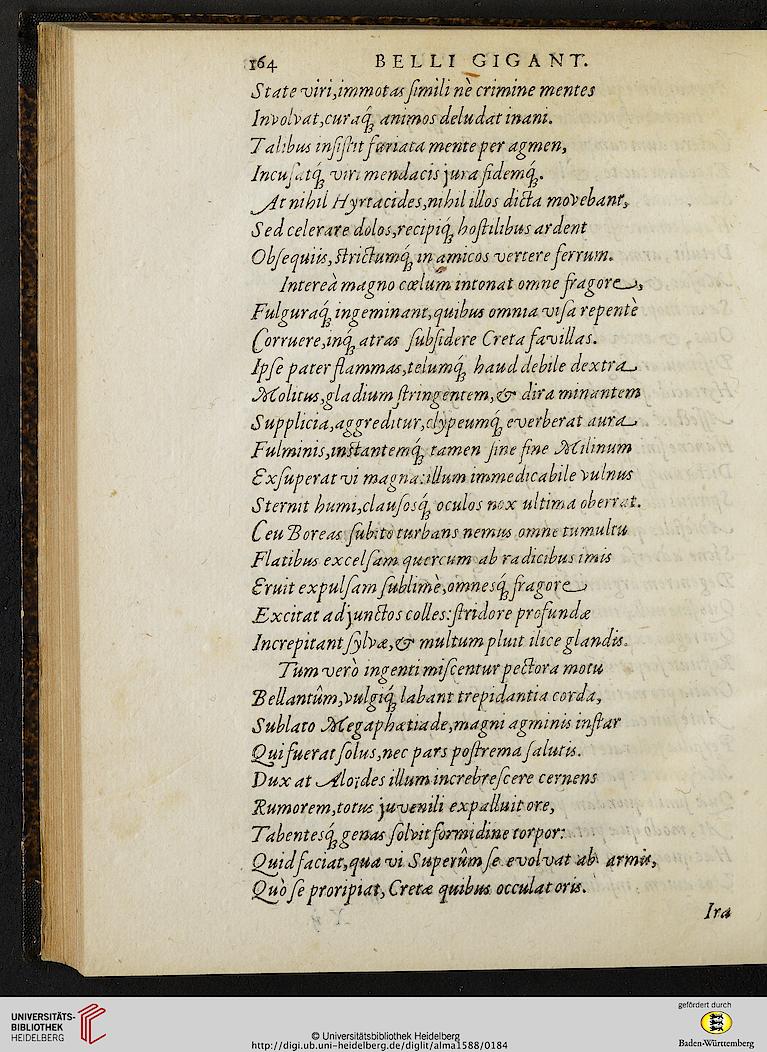 164 BELLI GIGANT.
State viri,immotas simili nè crimine mentes
Involvat,curaq́; animos deludat inani.
Talibus insistit fariata mente per agmen,
Incusatq́; viri mendacis jura fidemq́;.
At nihil Hyrtacides,nihil illos dicta movebant,
Sed celerare dolos,recipiq́; hostilibus ardent
Obsequiis, strictumq́; in amicos vertere ferrum.
Intereà magno cœlum intonat omne fragore,
Fulguraq́; ingeminant,quibus omnia visa repentè
Corruere,inq́; atras subsidere Creta favillas.
Ipse pater flammas,telumq́; haud debile dextra
Molitus,gladium stringentem,& dira minantem
Supplicia,aggreditur,clypeumq́; everberat aura
Fulminis,instantemq́; tamen sine fine Milinum
Exsuperat vi magna:illum immedicabile vulnus
Sternit humi,clausosq́; oculos nox ultima oberrat.
Ceu Boreas subitò turbans nemus omne tumultu
Flatibus excelsam quercum ab radicibus imis
Eruit expulsam sublimè,omnesq́; fragore
Excitat adjunctos colles:stridore profundæ
Increpitant sylvæ,& multum pluit ilice glandis.
Tum verò ingenti miscentur pectora motu
Bellantûm,vulgiq́; labant trepidantia corda,
Sublato Megaphætiade,magni agminis instar
Qui fuerat solus,nec pars postrema salutis.
Dux at Aloïdes illum increbrescere cernens
Rumorem,totus juvenili expalluit ore,
Tabentesq́; genas solvit formidine torpor:
Quid faciat,qua vi Superûm se evolvat ab armis,
Quò se proripiat, Cretæ quibus occulat oris.
Ira
UNIVERSITÄTS-
BIBLIOTHEK
HEIDELBERG
© Universitätsbibliothek Heidelberg
http://digi.ub.uni-heidelberg.de/diglit/alma1588/0184
gefördert durch
Baden-Württemberg